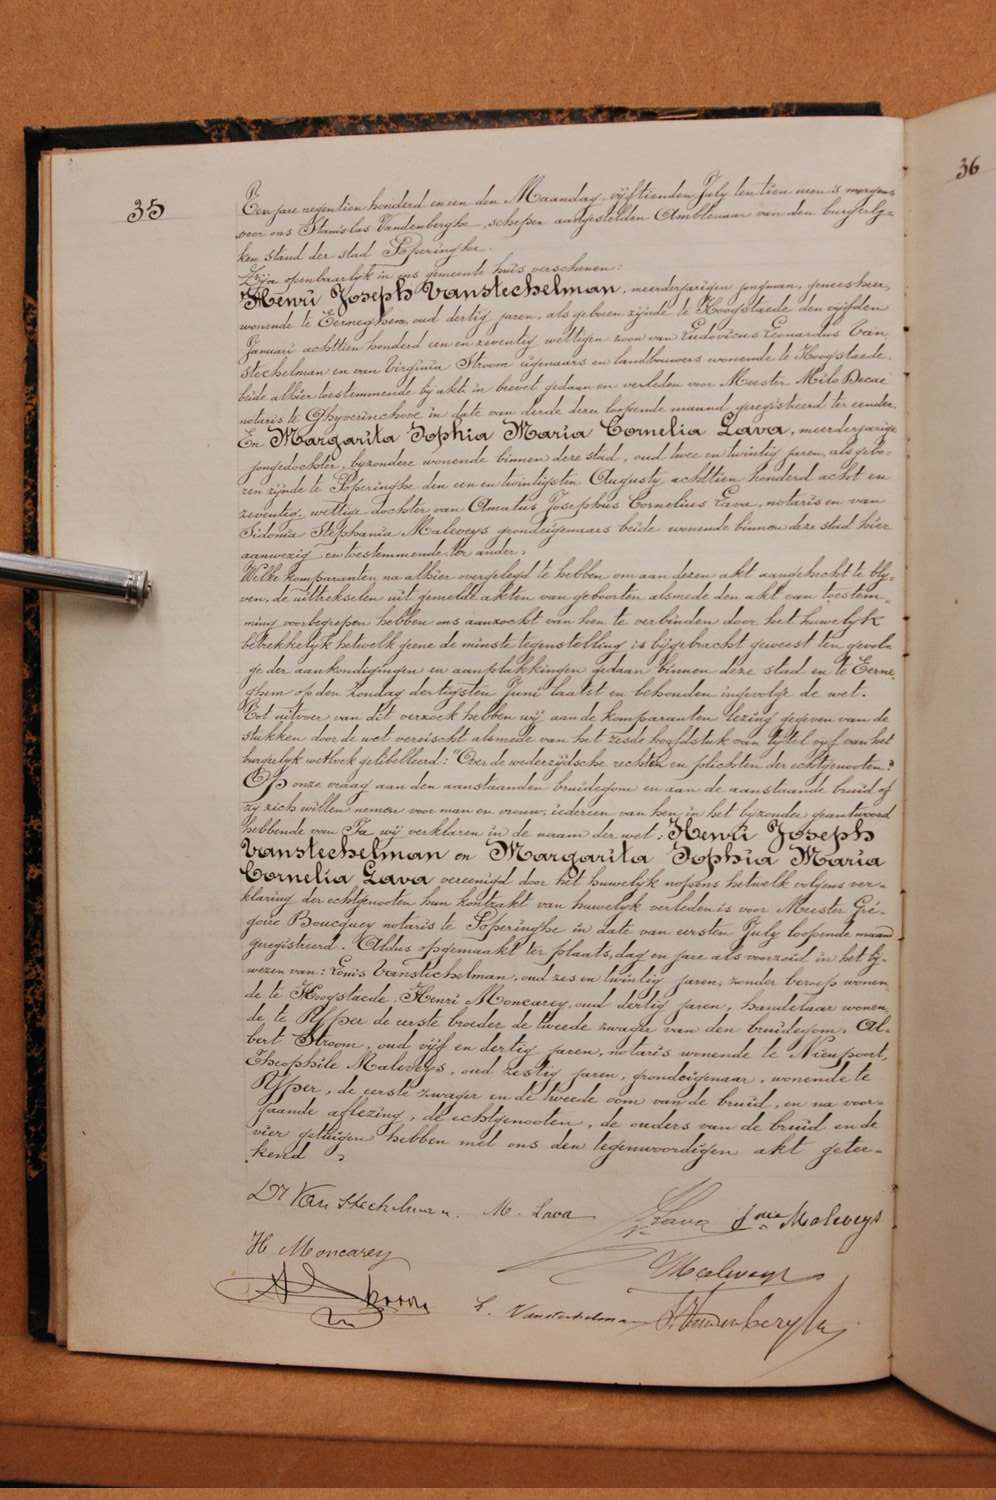 35
36
Een jare negentien honderd en een den Maandag vyftienden July ten tien uren 's morgens
voor ons Stanislas Vandenberghe, schepen aangestelden Ambtenaar van den burgerly-
ken stand der stad Poperinghe.
Zyn openbaarlyk in ons gemeente huis verschenen:
Henri Joseph Vanstechelman, meerderjarigen jongman, geneesheer,
wonende te Eerneghem, oud dertig jaren, als geboren zynde te Hoogstaede den vyfden
Januari achttien honderd een en zeventig wettigen zoon van Ludovicus Leonardus Van
stechelman en van Virginia Stroom eigenaars en landbouwers wonende te Hoogstaede.
beide alhier toestemmende by akte in brevet gedaan en verleden voor Meester Milo Decae
notaris te Ghyverinchove in date van derde dezer loopende maand geregistreerd ter eender.
En Margarita Sophia Maria Cornelia Lava, meerderjarige
jongedochter, byzondere wonende binnen deze stad, oud twee en twintig jaren, als gebo-
ren zynde te Poperinghe den een en twintigsten Augusty achttien honderd acht en
zeventig wettige dochter van Amatus Josephus Cornelius Lava, notaris en van
Sidonia Stephania Maleveys grondeigenaars beide wonende binnen deze stad hier
aanwezig en toestemmende ter ander.
Welke komparanten na alhier overgelegd te hebben om aan dezen akt aangehecht te bly-
ven, de uittrekselen uit gemelde akten van geboorten alsmede den akt van toestem-
ming voorbegrepen hebben ons aanzocht van hen te verbinden door het huwelyk
betrekkelyk hetwelk geene de minste tegenstelling is bygebracht geweest ten gevol-
ge der aankondigingen en aanplakkingen gedaan binnen deze stad en te Eerne-
ghem op den Zondag dertigsten Juni laatst en behouden ingevolge de wet.
Tot uitvoer van dit verzoek hebben wy aan de komparanten lezing gegeven van de
stukken door de wet vereischt alsmede van het zesde hoofdstuk van tytel vyf van het
burgerlyk wetboek gelibelleerd: "Over de wederzydsche rechten en plichten der echtgenooten."
Op onze vraag aan den aanstaanden bruidegom en aan de aanstaande bruid of
zy zich willen nemen voor man en vrouw, iedereen van hen in het byzonder geantwoord
hebbende van Ja wy verklaren in de naam der wet: Henri Joseph
Vanstechelman en Margarita Sophia Maria
Cornelia Lava vereenigd door het huwelyk nopens hetwelk volgens ver-
klaring der echtgenooten hun kontrakt van huwelyk verleden is voor Meester Gré-
goire Boucquey notaris te Poperinghe in date van eersten July loopende maand
geregistreerd. Aldus opgemaakt ter plaats, dag en jare als voorzeid in het by-
wezen van: Louis Vanstechelman, oud zes en twintig jaren, zonder beroep wonen
de te Hoogstaede, Henri Moncarey, oud dertig jaren, handelaar wonen
de te Ypper de eerste broeder de tweede zwager van den bruidegom, Al-
bert Stroom, oud vyf en dertig jaren, notaris wonende te Nieupoort,
Theophile Maleveys, oud zestig jaren, grondeigenaar, wonende te
Ypper, de eerste zwager en de tweede oom van de bruid, en na voor-
gaande aflezing, de echtgenooten, de ouders van de bruid en de
vier getuigen hebben met ons den tegenwoordigen akt getee-
kend
Dr Vanstechelman. M. Lava Lava Maleveys
H Moncarey Maleveys
Stroom L. Vanstechelman S. Vandenberghe